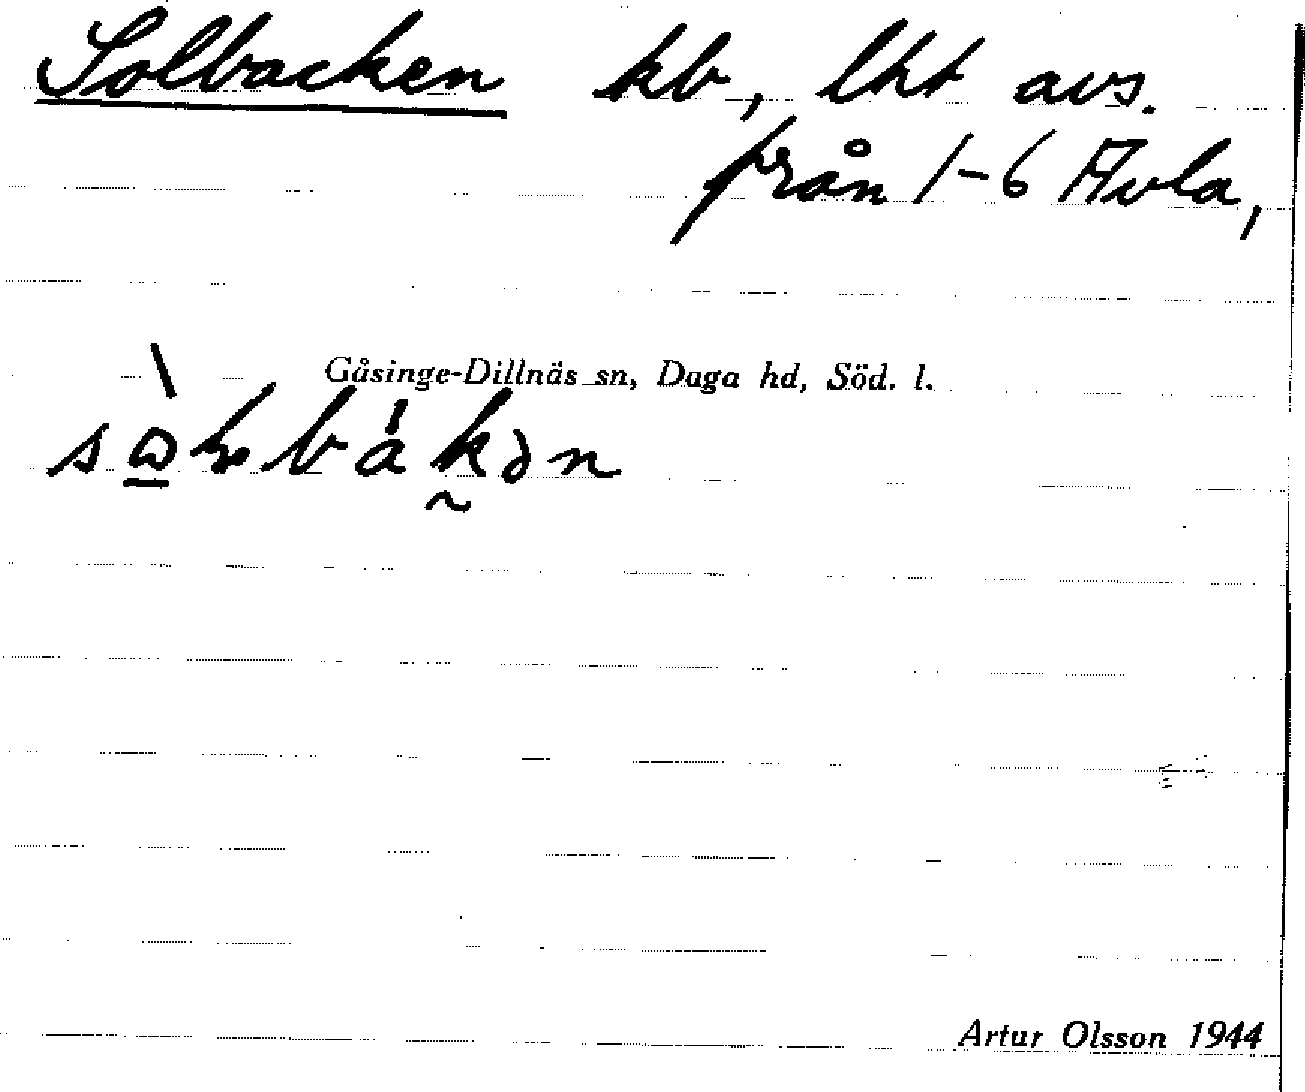 Solbacken kb, lht avs.
från 1-6 Avla,
Gåsinge-Dillnäs sn, Daga hd, Söd. l.
Artur Olsson 1944